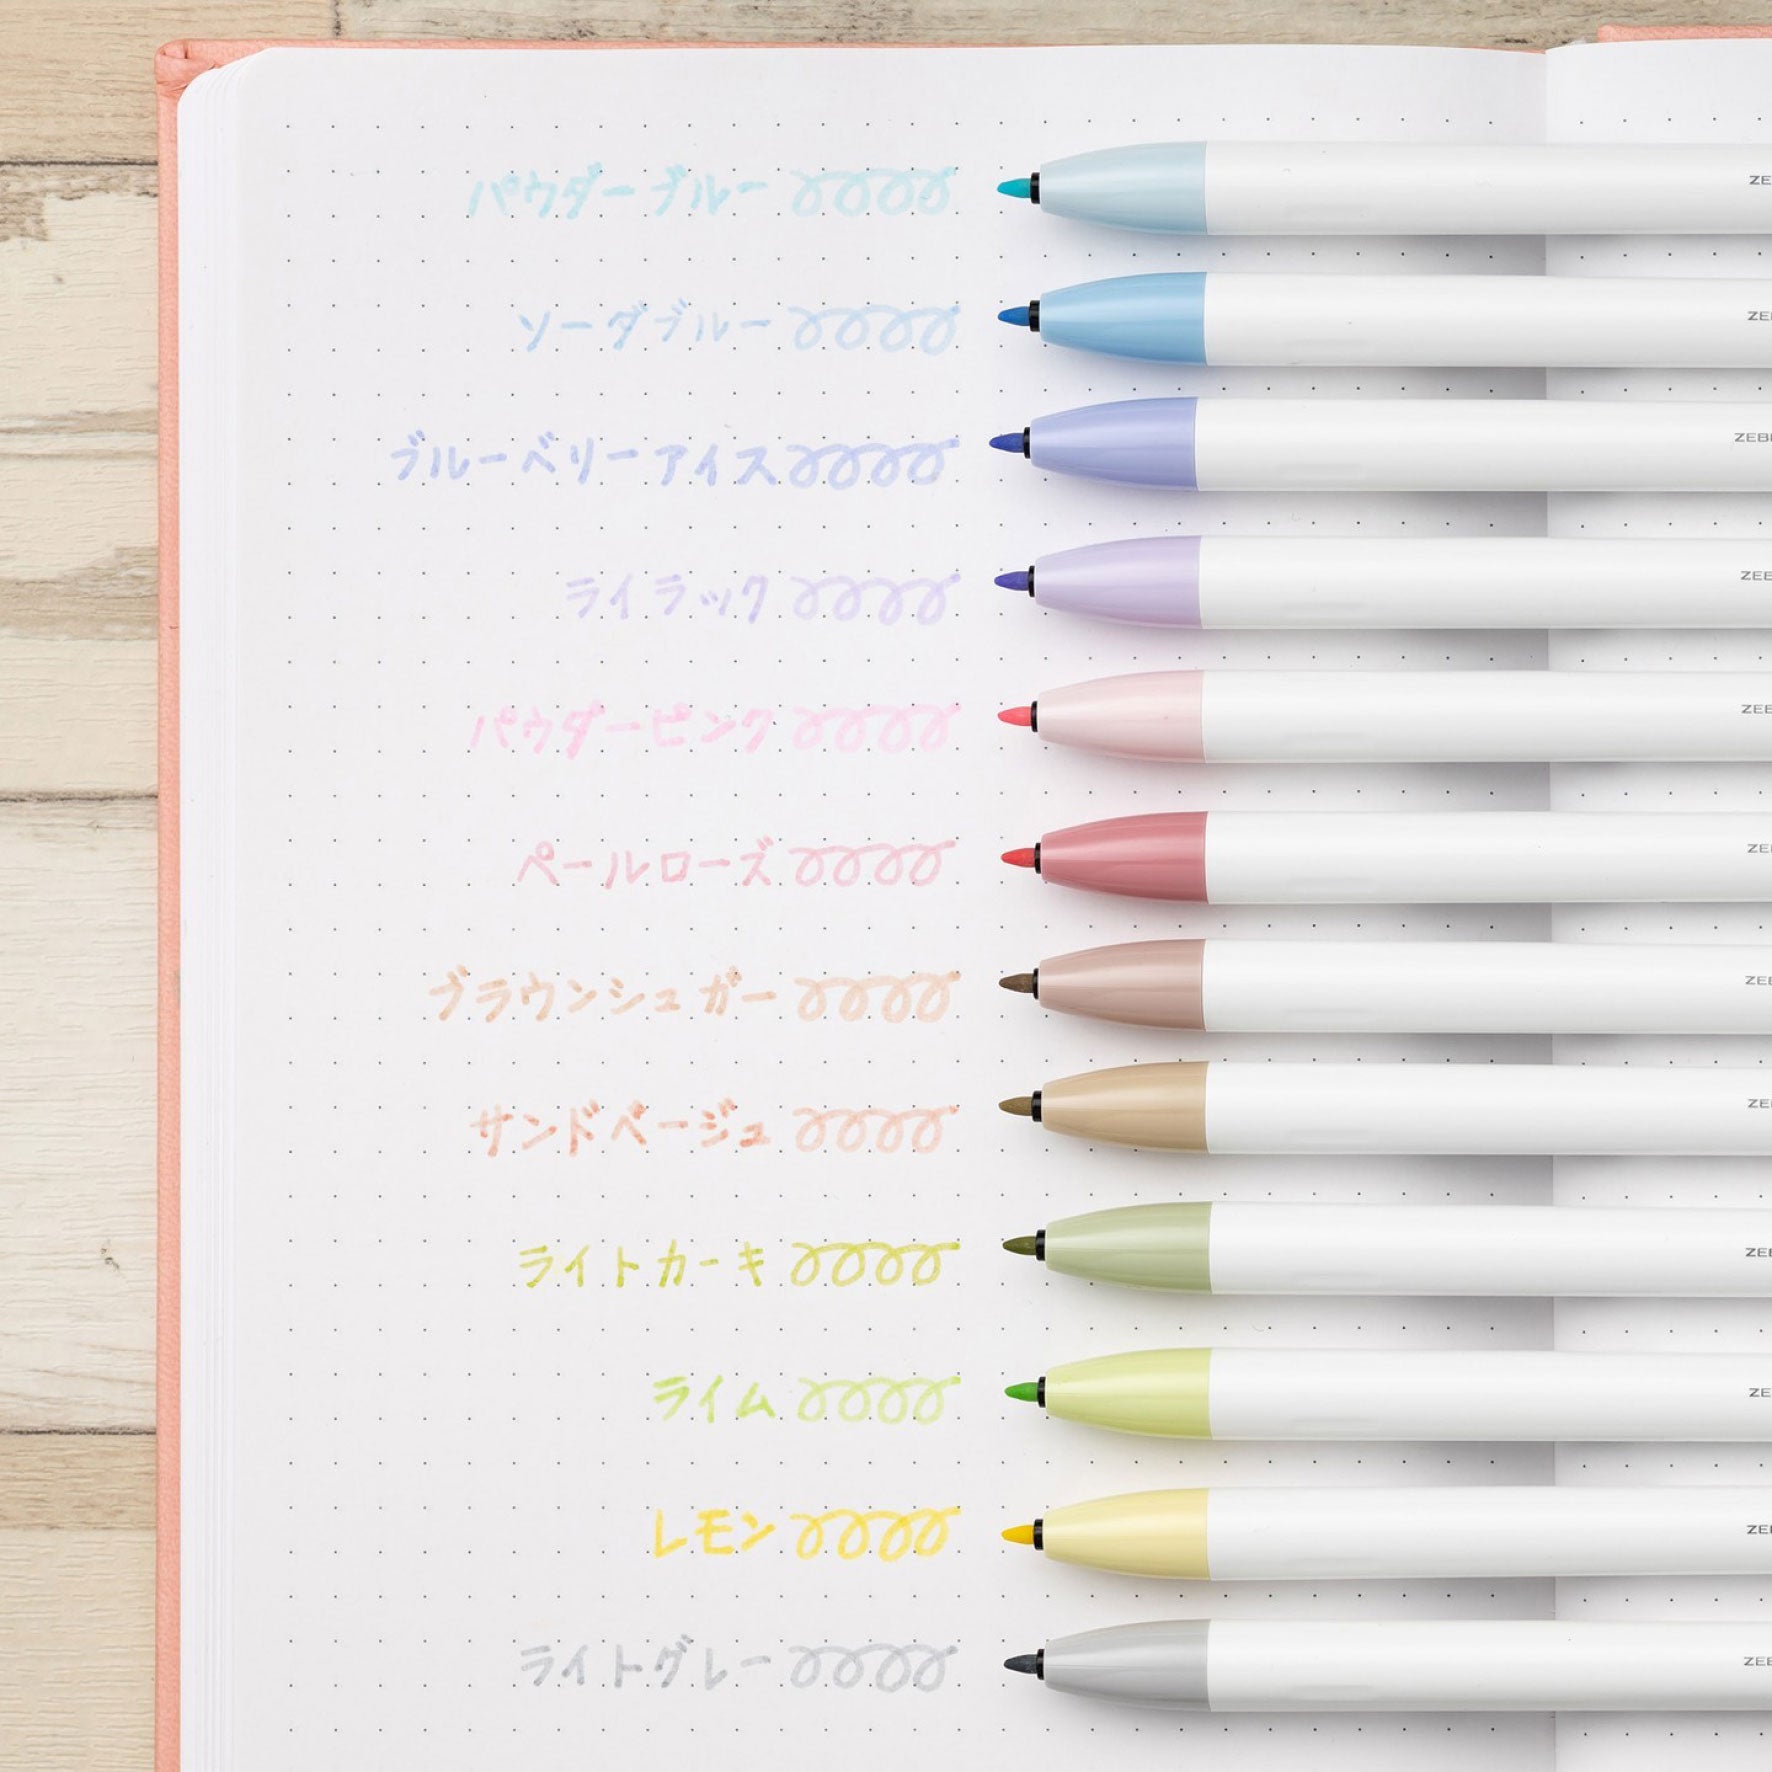 パウダーブルー ZE
ソーダブルー ZEE
ブルーベリーアイス ZEB
ライラック ZEE
パウダーピンク ZEE
ペールローズ ZEE
ブラウンシュガー ZEE
サンドベージュ ZEE
ライトカーキ ZEE
ライム ZE
レモン ZEE
ライトグレー ZEE